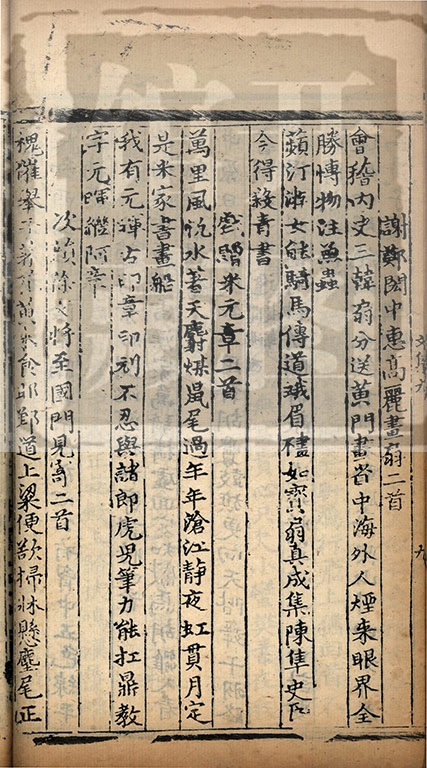 謝鄭閎中惠高麗畫扇二首
會稽內史三韓扇分送黃門畫省中海外人煙來眼界全
勝博物注魚蟲
蘋汀游女能騎馬傳道蛾眉畫不如寶扇真成集陳隼史臣
今得殺青書
戲贈米元章二首
萬里風帆水著天麝煤鼠尾過年年滄江靜夜虹貫月定
是米家書畫船
我有元暉古印章印刓不忍與諸郎虎兒筆力能扛鼎教
字元暉繼阿章
次韻徐文將至國門見寄二首
槐催舉子著花黃來食邯鄲道上粱便欲掃牀懸麈尾正